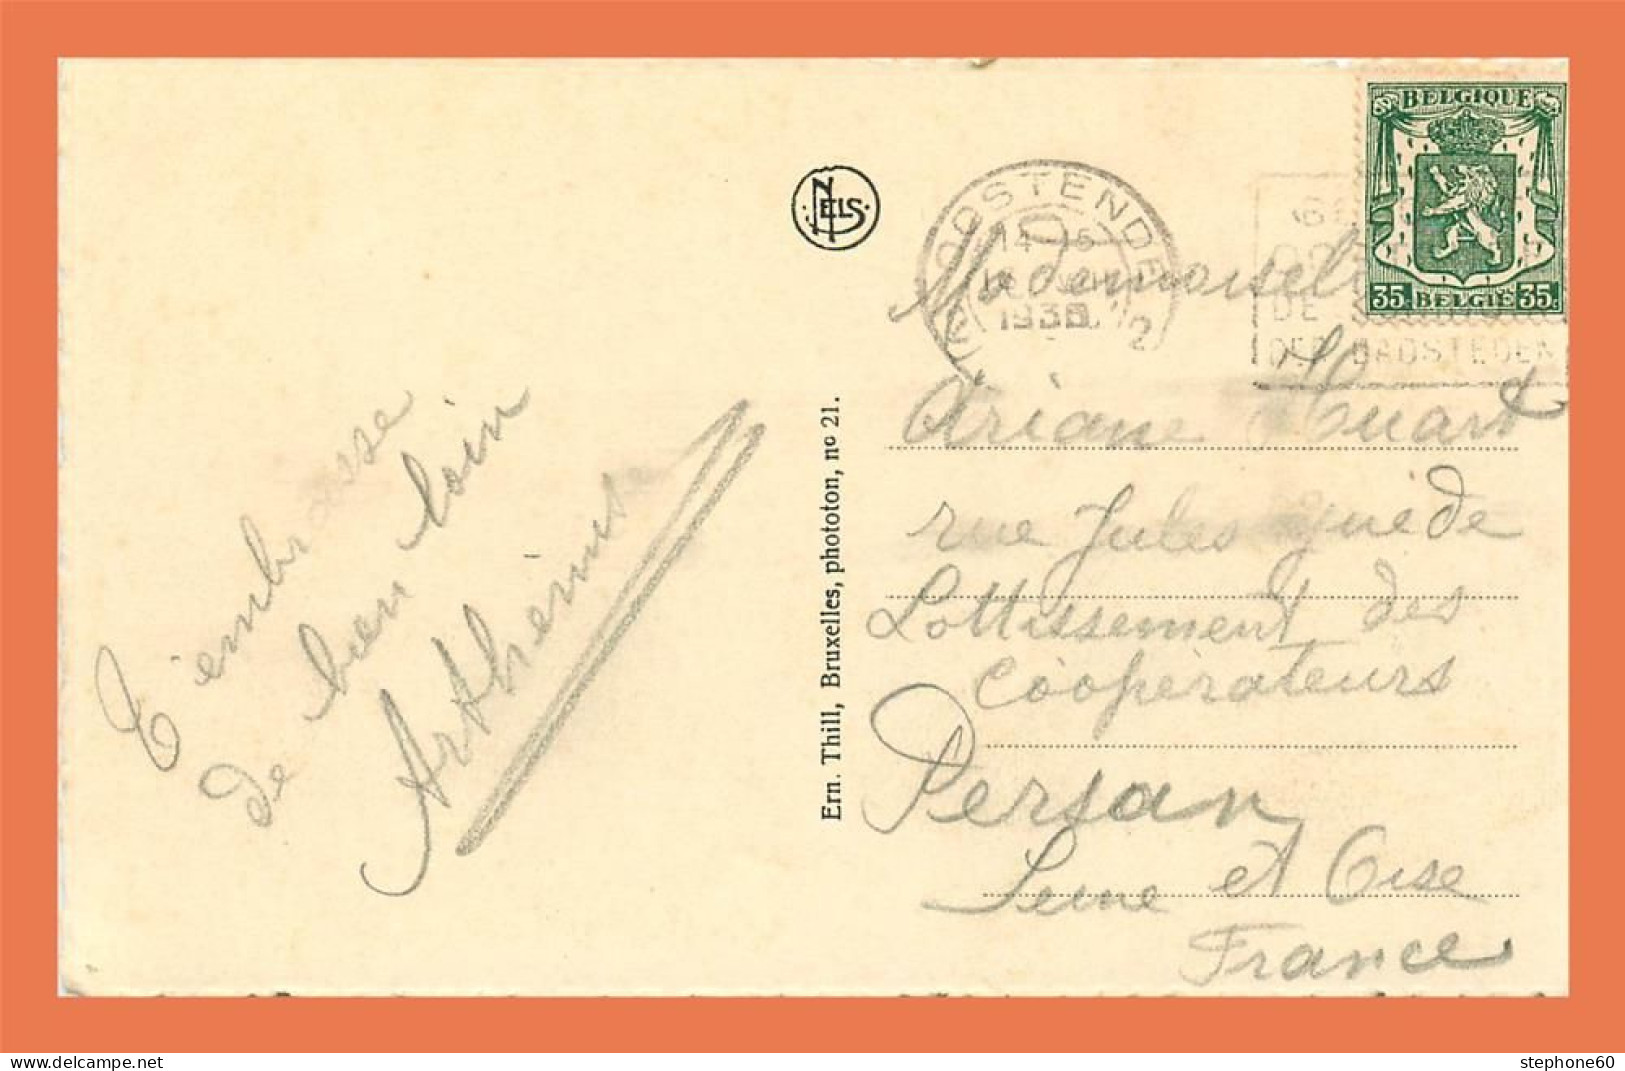 T'embrasse
de bien loin
Arthémise
NELS
Ern. Thill, Bruxelles, phototon, no 21.
OOSTENDE
14 15
1938
2
BELGIQUE
35c BELGIË 35c
DE
DER BADSTEDEN
Mademoiselle
Ariane Huart
rue Jules Guède
Lottissement des
coopérateurs
Persan
Seine et Oise
France
delcampe.net
stephone60